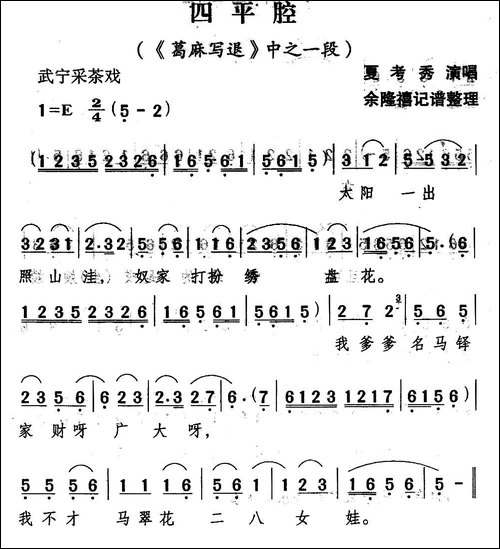 四平腔
（《葛麻写退》中之一段）
武宁采茶戏
夏考秀演唱
1=E 2/4 (5-2)
余隆禧记谱整理
(1235 2326 | 1656 1 | 5615) | 3 12 | 5 532 |
太阳 一出
3231 | 2·32 | 5 56 | 1 16 | 2356 | 123 | 1656 | 5·(6
照山洼，奴家打扮绣 盘花。
1235 2326 | 1656 1 | 5615) | 2 7 2 3 | 5 6 5 |
我爹爹名马铎
2 3 5 6 | 6 2 3 | 2·3 2 7 | 6·(7 | 6135 1230 | 1235 1217 | 6156) |
家财呀广大呀，
5 5 56 | 1 1 16 | 5·6 1 | 2 23 | 1656 | 5 - ‖
我不才 马翠花 二八女娃。